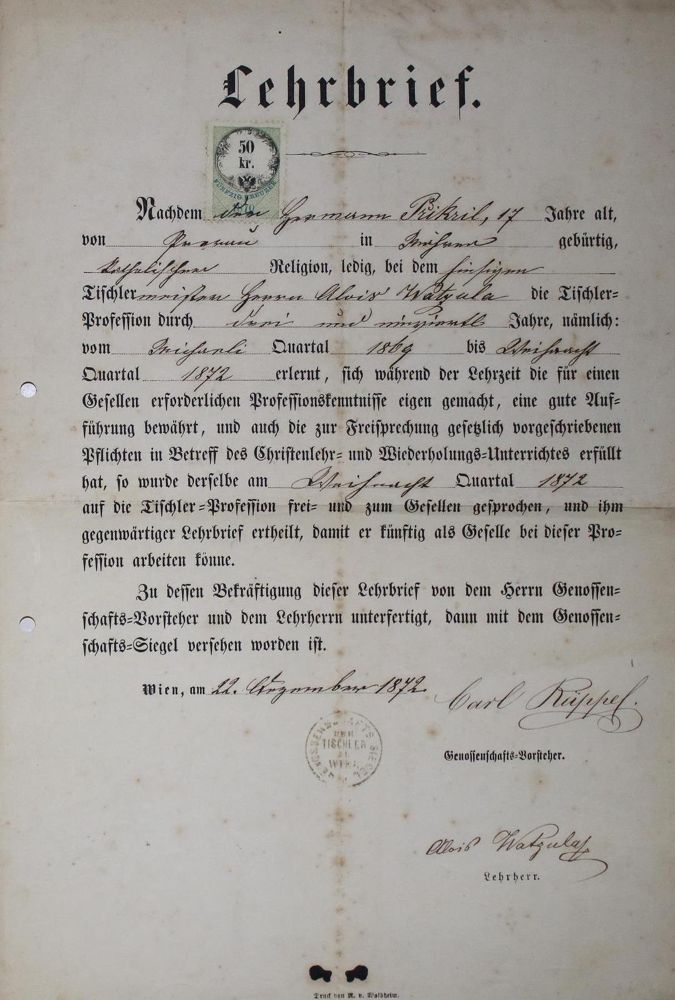 Lehrbrief.
50
kr.
FÜNFZIG KREUZER
1870
Nachdem der Hermann Prikril, 17 Jahre alt,
von Prerau in Mähren gebürtig,
katholischer Religion, ledig, bei dem hiesigen
Tischlermeister Herrn Alois Watzula die Tischler-
Profession durch drei und einviertl Jahre, nämlich:
vom Michaeli Quartal 1869 bis Weihnacht
Quartal 1872 erlernt, sich während der Lehrzeit die für einen
Gesellen erforderlichen Professionskenntnisse eigen gemacht, eine gute Auf-
führung bewährt, und auch die zur Freisprechung gesetzlich vorgeschriebenen
Pflichten in Betreff des Christenlehr- und Wiederholungs-Unterrichtes erfüllt
hat, so wurde derselbe am Weihnacht Quartal 1872
auf die Tischler-Profession frei- und zum Gesellen gesprochen, und ihm
gegenwärtiger Lehrbrief ertheilt, damit er künftig als Geselle bei dieser Pro-
fession arbeiten könne.
Zu dessen Bekräftigung dieser Lehrbrief von dem Herrn Genossen-
schafts-Vorsteher und dem Lehrherrn unterfertigt, dann mit dem Genossen-
schafts-Siegel versehen worden ist.
Wien, am 22. Dezember 1872.
Carl Rüppel.
GENOSSENSCHAFTS SIEGEL
DER
TISCHLER
IN
WIEN
Genossenschafts-Vorsteher.
Alois Watzula
Lehrherr.
Druck von R. v. Waldheim.